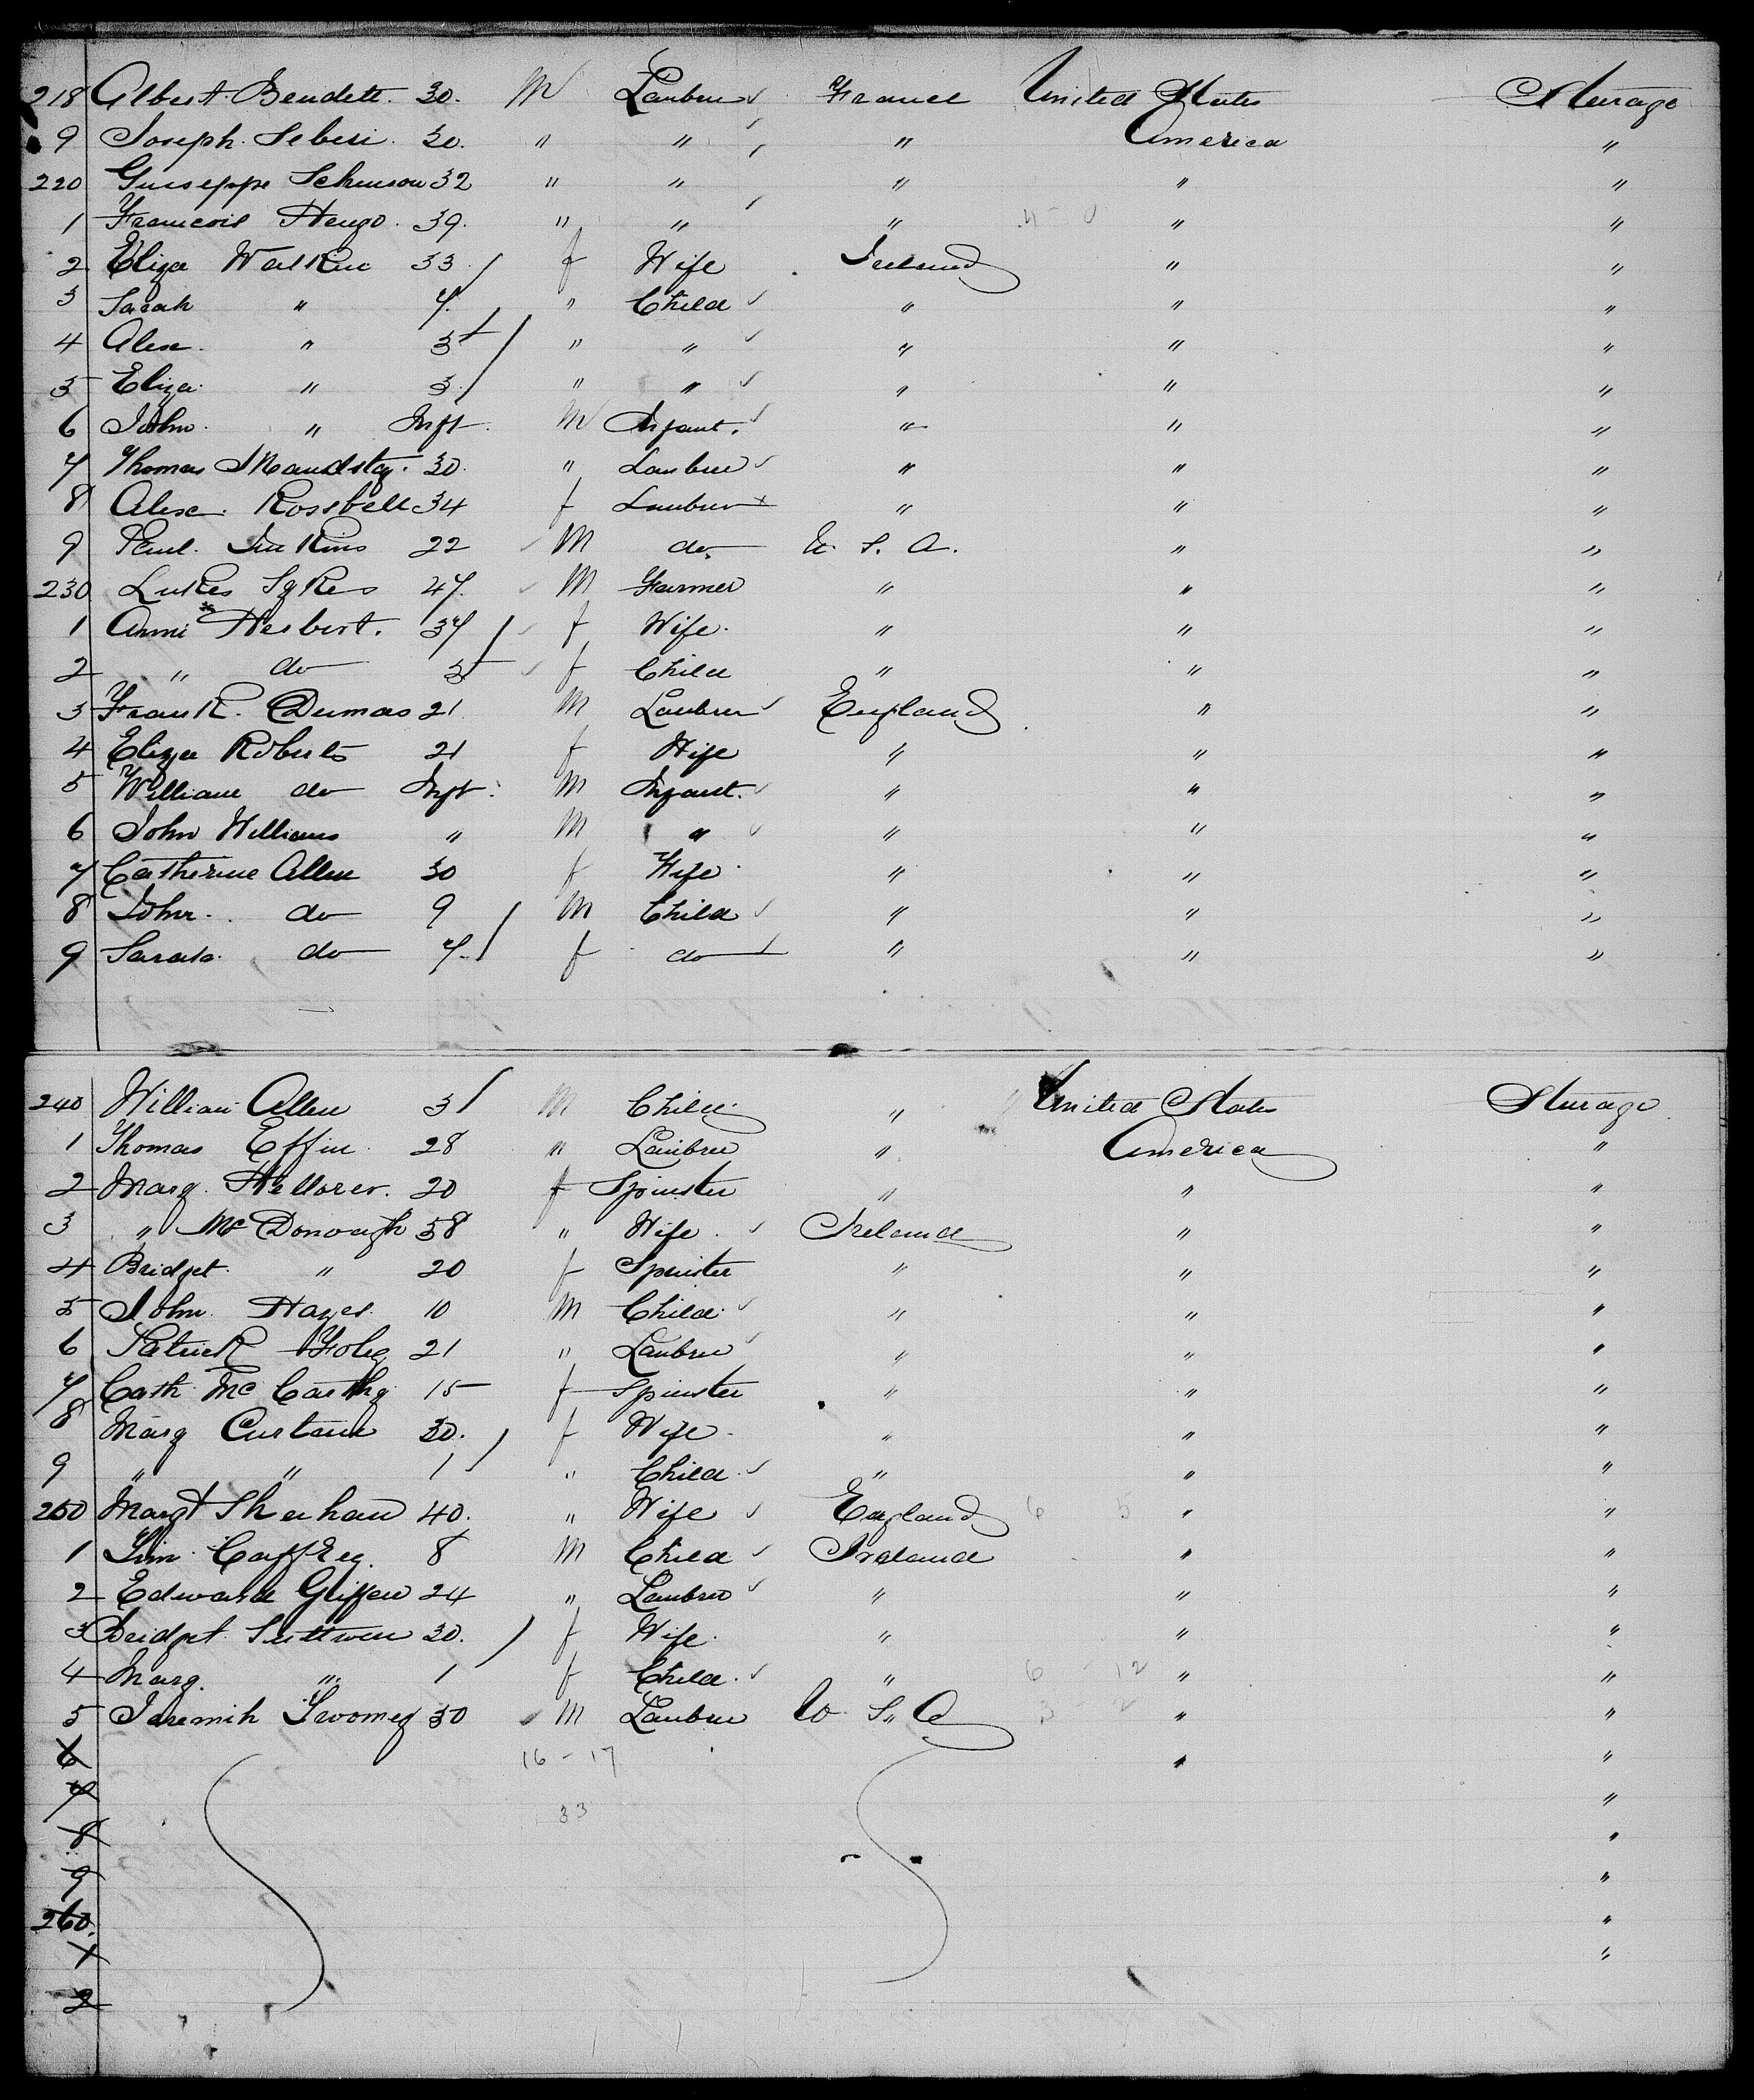 218 Albert Bendett. 30. M Laubur France United States Sturage
9 Joseph Seberi. 30. " " " America "
220 Guiseppe Schuison 32 " " " " "
1 Francois Hengo. 39. " " " " "
2 Eliza Walker 33 f Wife Ireland " "
3 Sarah " 7. " Child " " "
4 Alex. " 5 " " " " "
5 Eliza " 3. " " " " "
6 John. " Inft. M Infant. " " "
7 Thomas 30. " Laubur " " "
8 Alex. Rossbell 34 f Laubur " " "
9 Paul Jenkins 22 M do U. S. A. " "
230 Lukes Sykes 47. M Farmer " " "
1 Anni Herbert. 37 f Wife. " " "
2 " do 5 f Child " " "
3 Frank. Dumas 21. M Laubur England " "
4 Eliza Roberts 21 f Wife " " "
5 William do Inft. M Infant. " " "
6 John Williams " M " " " "
7 Catherine Allen 30 f Wife " " "
8 John. do 9 M Child " " "
9 Sarah. do 7. f do " " "
240 William Allen 3 M Child " United States Sturage
1 Thomas Effin 28 " Laubur " America "
2 Marg. 20 f Spinster " " "
3 " Mc Donough 38 " Wife. Ireland " "
4 Bridget. " 20 f Spinster " " "
5 John Hayes. 10 M Child " " "
6 Patrick Foley 21 " Laubur " " "
7 Cath Mc Carthy 15 f Spinster " " "
8 Marg Curtain 30. f Wife. " " "
9 " " 1 " Child. " " "
250 Margt Sheehan 40. " Wife England " "
1 Tim Caffrey. 8 M Child Ireland " "
2 Edward Giffen 24 " Laubur " " "
3 Bridget 30. f Wife. " " "
4 Marg. " 1 f Child. " " "
5 Jeremih Twomey 50 M Laubur U S. A " "
6 16 - 17 " "
7 33 "
8 "
9 "
260. "
1 "
2